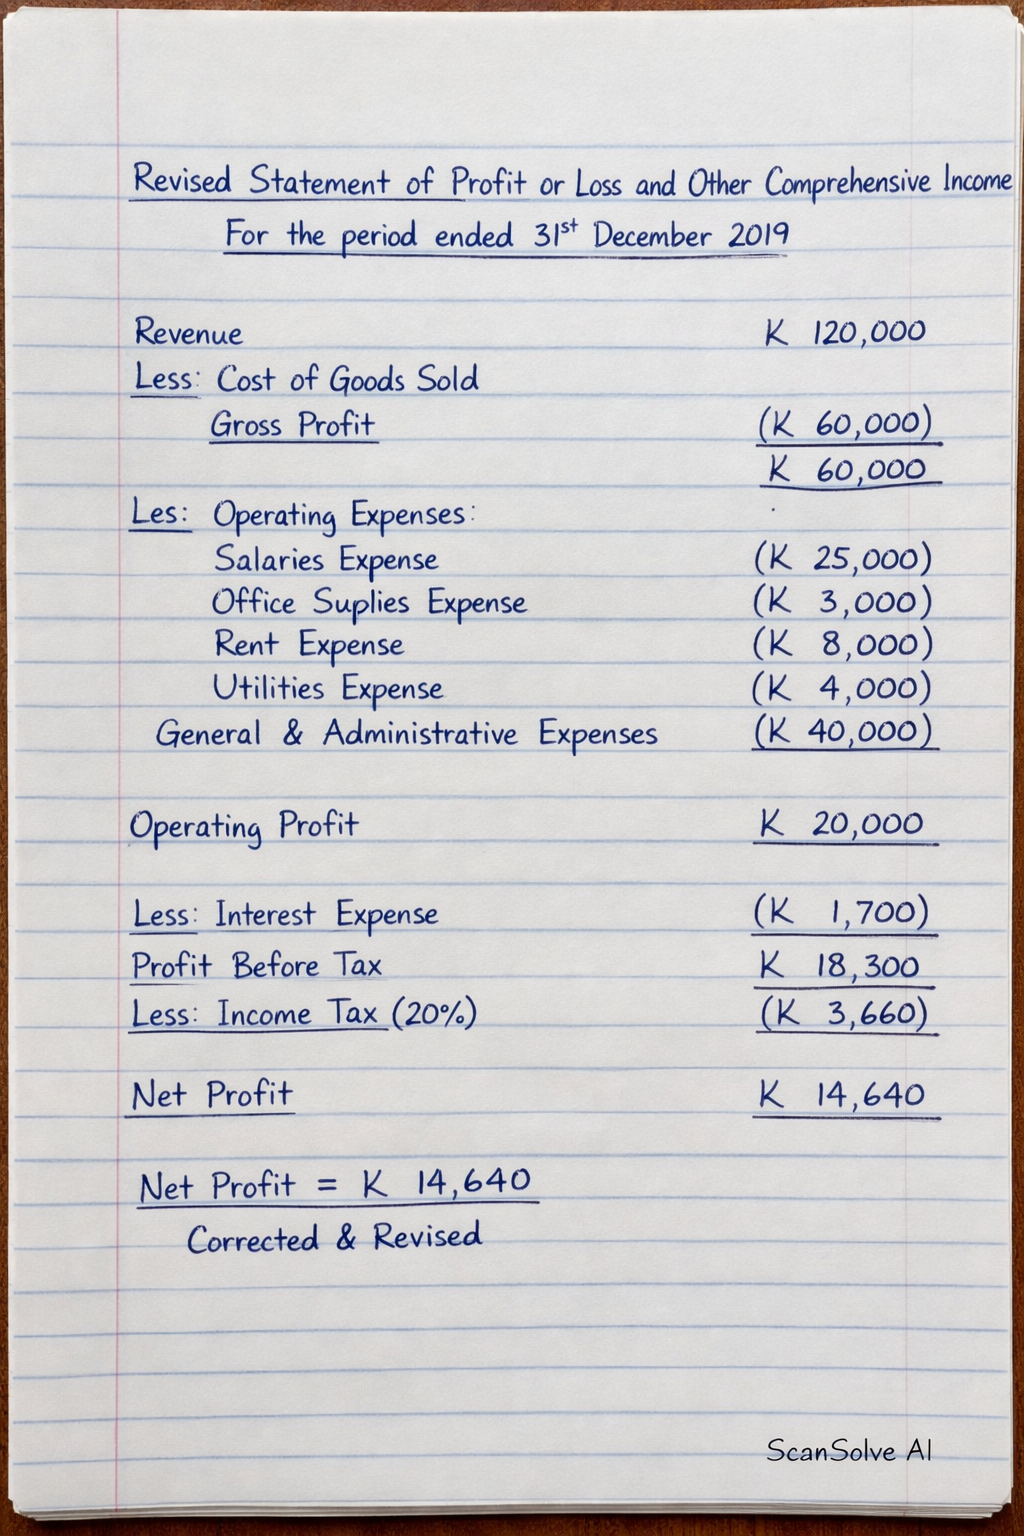 Revised Statement of Profit or Loss and Other Comprehensive Income
For the period ended 31st December 2019
Revenue K 120,000
Less: Cost of Goods Sold
Gross Profit (K 60,000)
K 60,000
Les: Operating Expenses:
Salaries Expense (K 25,000)
Office Suplies Expense (K 3,000)
Rent Expense (K 8,000)
Utilities Expense (K 4,000)
General & Administrative Expenses (K 40,000)
Operating Profit K 20,000
Less: Interest Expense (K 1,700)
Profit Before Tax K 18,300
Less: Income Tax (20%) (K 3,660)
Net Profit K 14,640
Net Profit = K 14,640
Corrected & Revised
ScanSolve AI